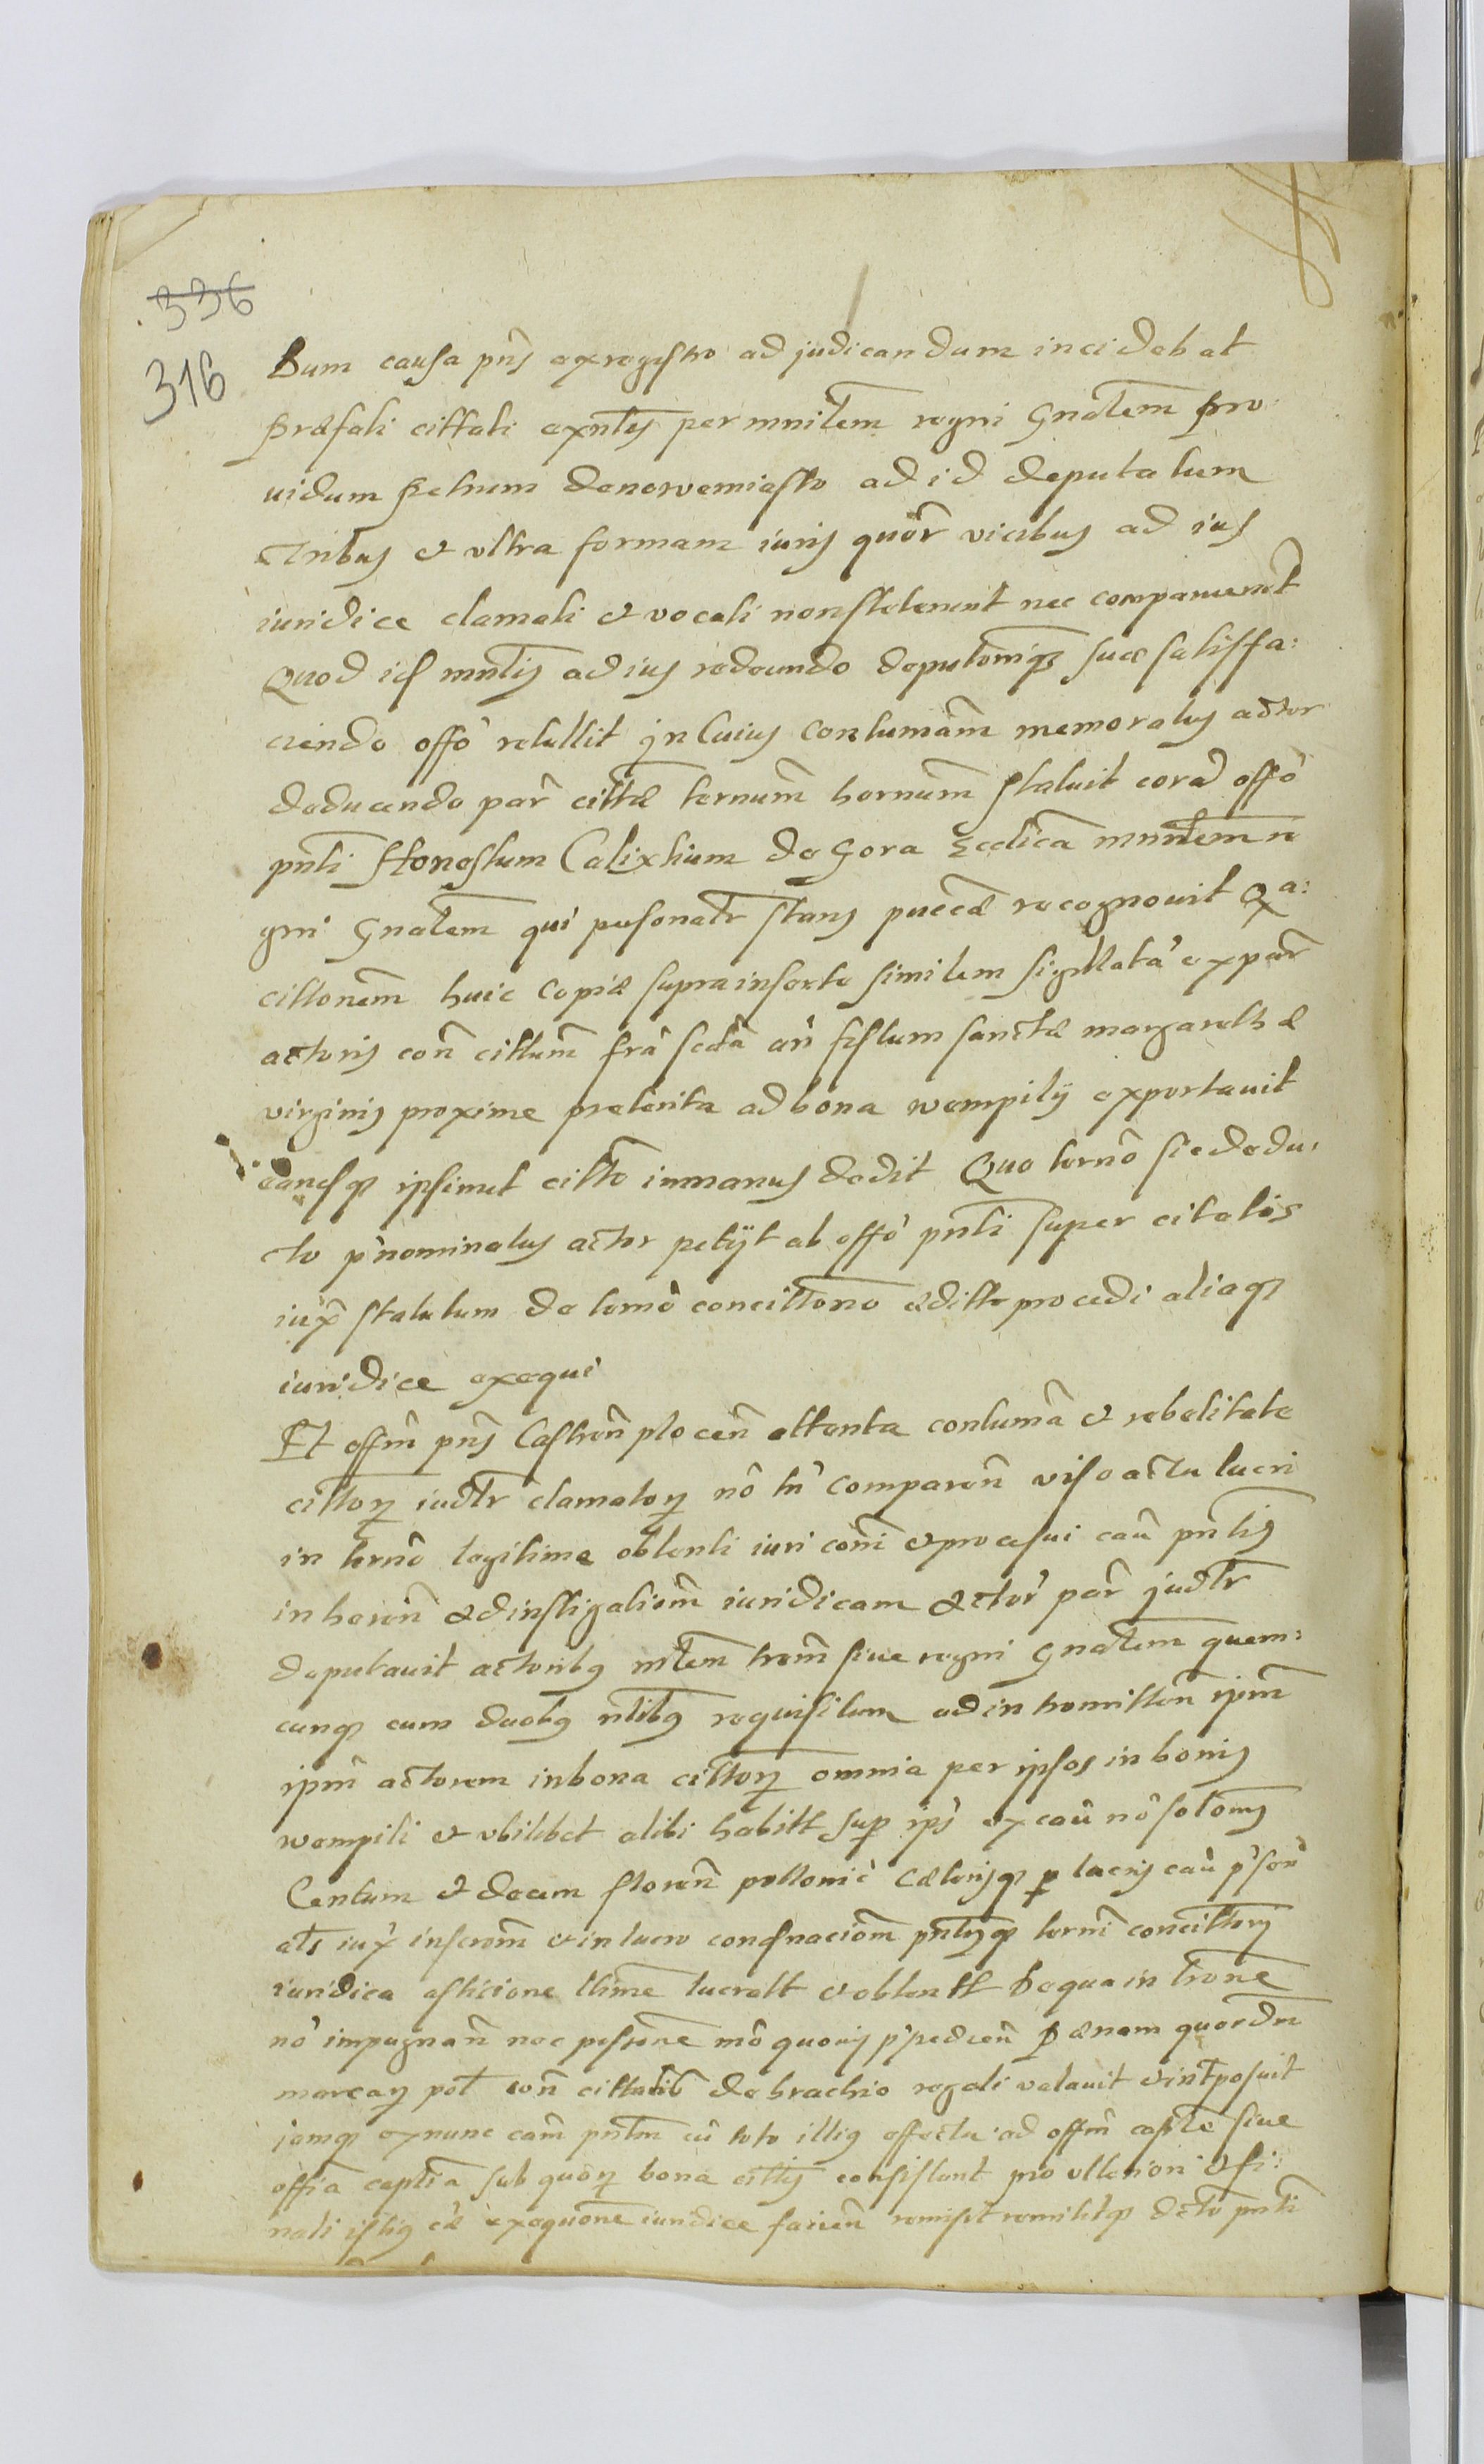 336
316
Dum causa pns ex registro ad judicandum incidebat
Præfati cittati exntes per mnitem regni gnalem Pro:
uidum Petrum de nowemiasto ad id deputatum
Tribus et vltra formam iuris quor vicibus ad ius
iuridice clamati et vocati non steterunt nec comparuerunt
Quod is mntlis ad ius redeundo deputonique suæ satisfa:
ciendo offo retullit jn Cuius Contumam memoratus actor
deducendo par cittæ ternum hornum statuit cora offo
pnti Honestum Calixtium de Gora mnntem re
gni Gnalem qui personatr stans recognouit Qa:
cittonem huic Copiæ suprainserte similem sigillata ex par
actoris con cittum fra scda an festum sanctæ margarethæ
virginis proxime preterita ad bona wempily exportauit
eansque ipsimet citto in manus dedit Quo terno sic dedu:
cto pnominatus actor petyt ab offo pnti super citatis
iux statutum de termo concittono editto procedi aliaque
iuridice exequi
Et offm pns Castren plocen attenta contuma et rebelitate
cittorum iudtr clamatorum no tn comparen viso actu lucri
in terno legitime obtenti iuri coni et processui cau pntis
inheren ad instigationem iuridicam actor par judtr
deputauit actoribus mlem trem siue regni Gnalem quem:
cunque cum duobus nlibus requisitum ad intromitton ipm
ipm actorem in bona cittorum omnia per ipsos in bonis
wempili et vbilibet alibi habitt sup ips ex cau no solonis
Centum et decem floren pollonic cæterisque p lucris cau pson
als iux inscrom et in lucro consnaciom pntsque terni concittory
iuridica asticione ltime lucratt et obtentt De qua introne
no impugnan nec pessione mo quouis ppedien Pænam quordn
marcarum pol con cittatib de brachio regali valauit et intposuit
jamque ex nunc cam pntm cu toto illius effectu ad offm captle siue
offia captia sub quorum bona cittis consistunt pro vlteriori et fi:
nali istius cæ exequone iuridice facien remisit remititque dcto pnti